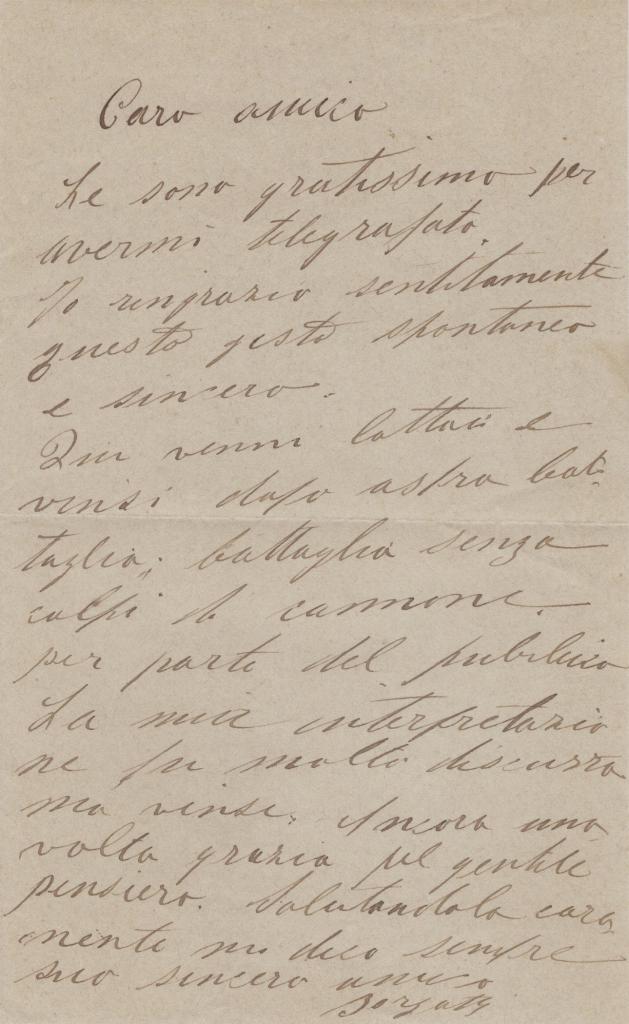 Caro amico
Le sono gratissimo per
avermi telegrafato.
Io ringrazio sentitamente
questo gesto spontaneo
e sincero.
Qui venni lottai e
vinsi dopo aspra bat-
taglia; battaglia senza
colpi di cannone.
per parte del pubblico
La mia interpretazio
ne fu molto discussa
ma vinse. Ancora una
volta grazia pel gentile
pensiero. Salutandola cara-
mente mi dico sempre
suo sincero amico